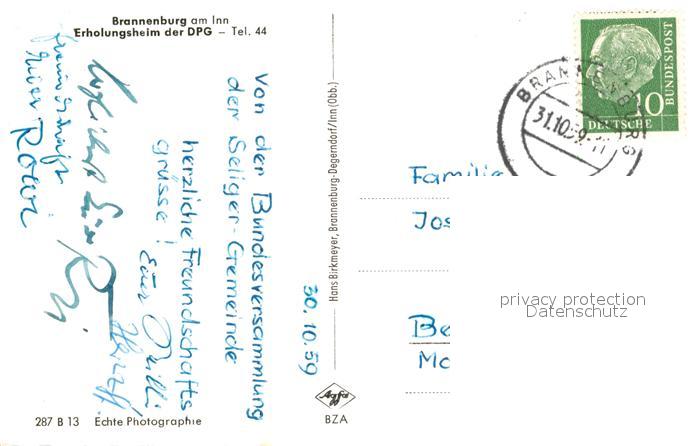 Brannenburg am Inn
Erholungsheim der DPG – Tel. 44
Von der Bundesversammlung
der Seliger-Gemeinde
herzliche Freundschafts
grüsse!
Euer Willi
30.10.59
287 B 13 Echte Photographie
Hans Birkmeyer, Brannenburg-Degerndorf/Inn (Obb.)
Agfa
BZA
BRANNENBURG
31.10.59
10
DEUTSCHE
BUNDESPOST
Familie
Jos
Be
Mo
privacy protection
Datenschutz